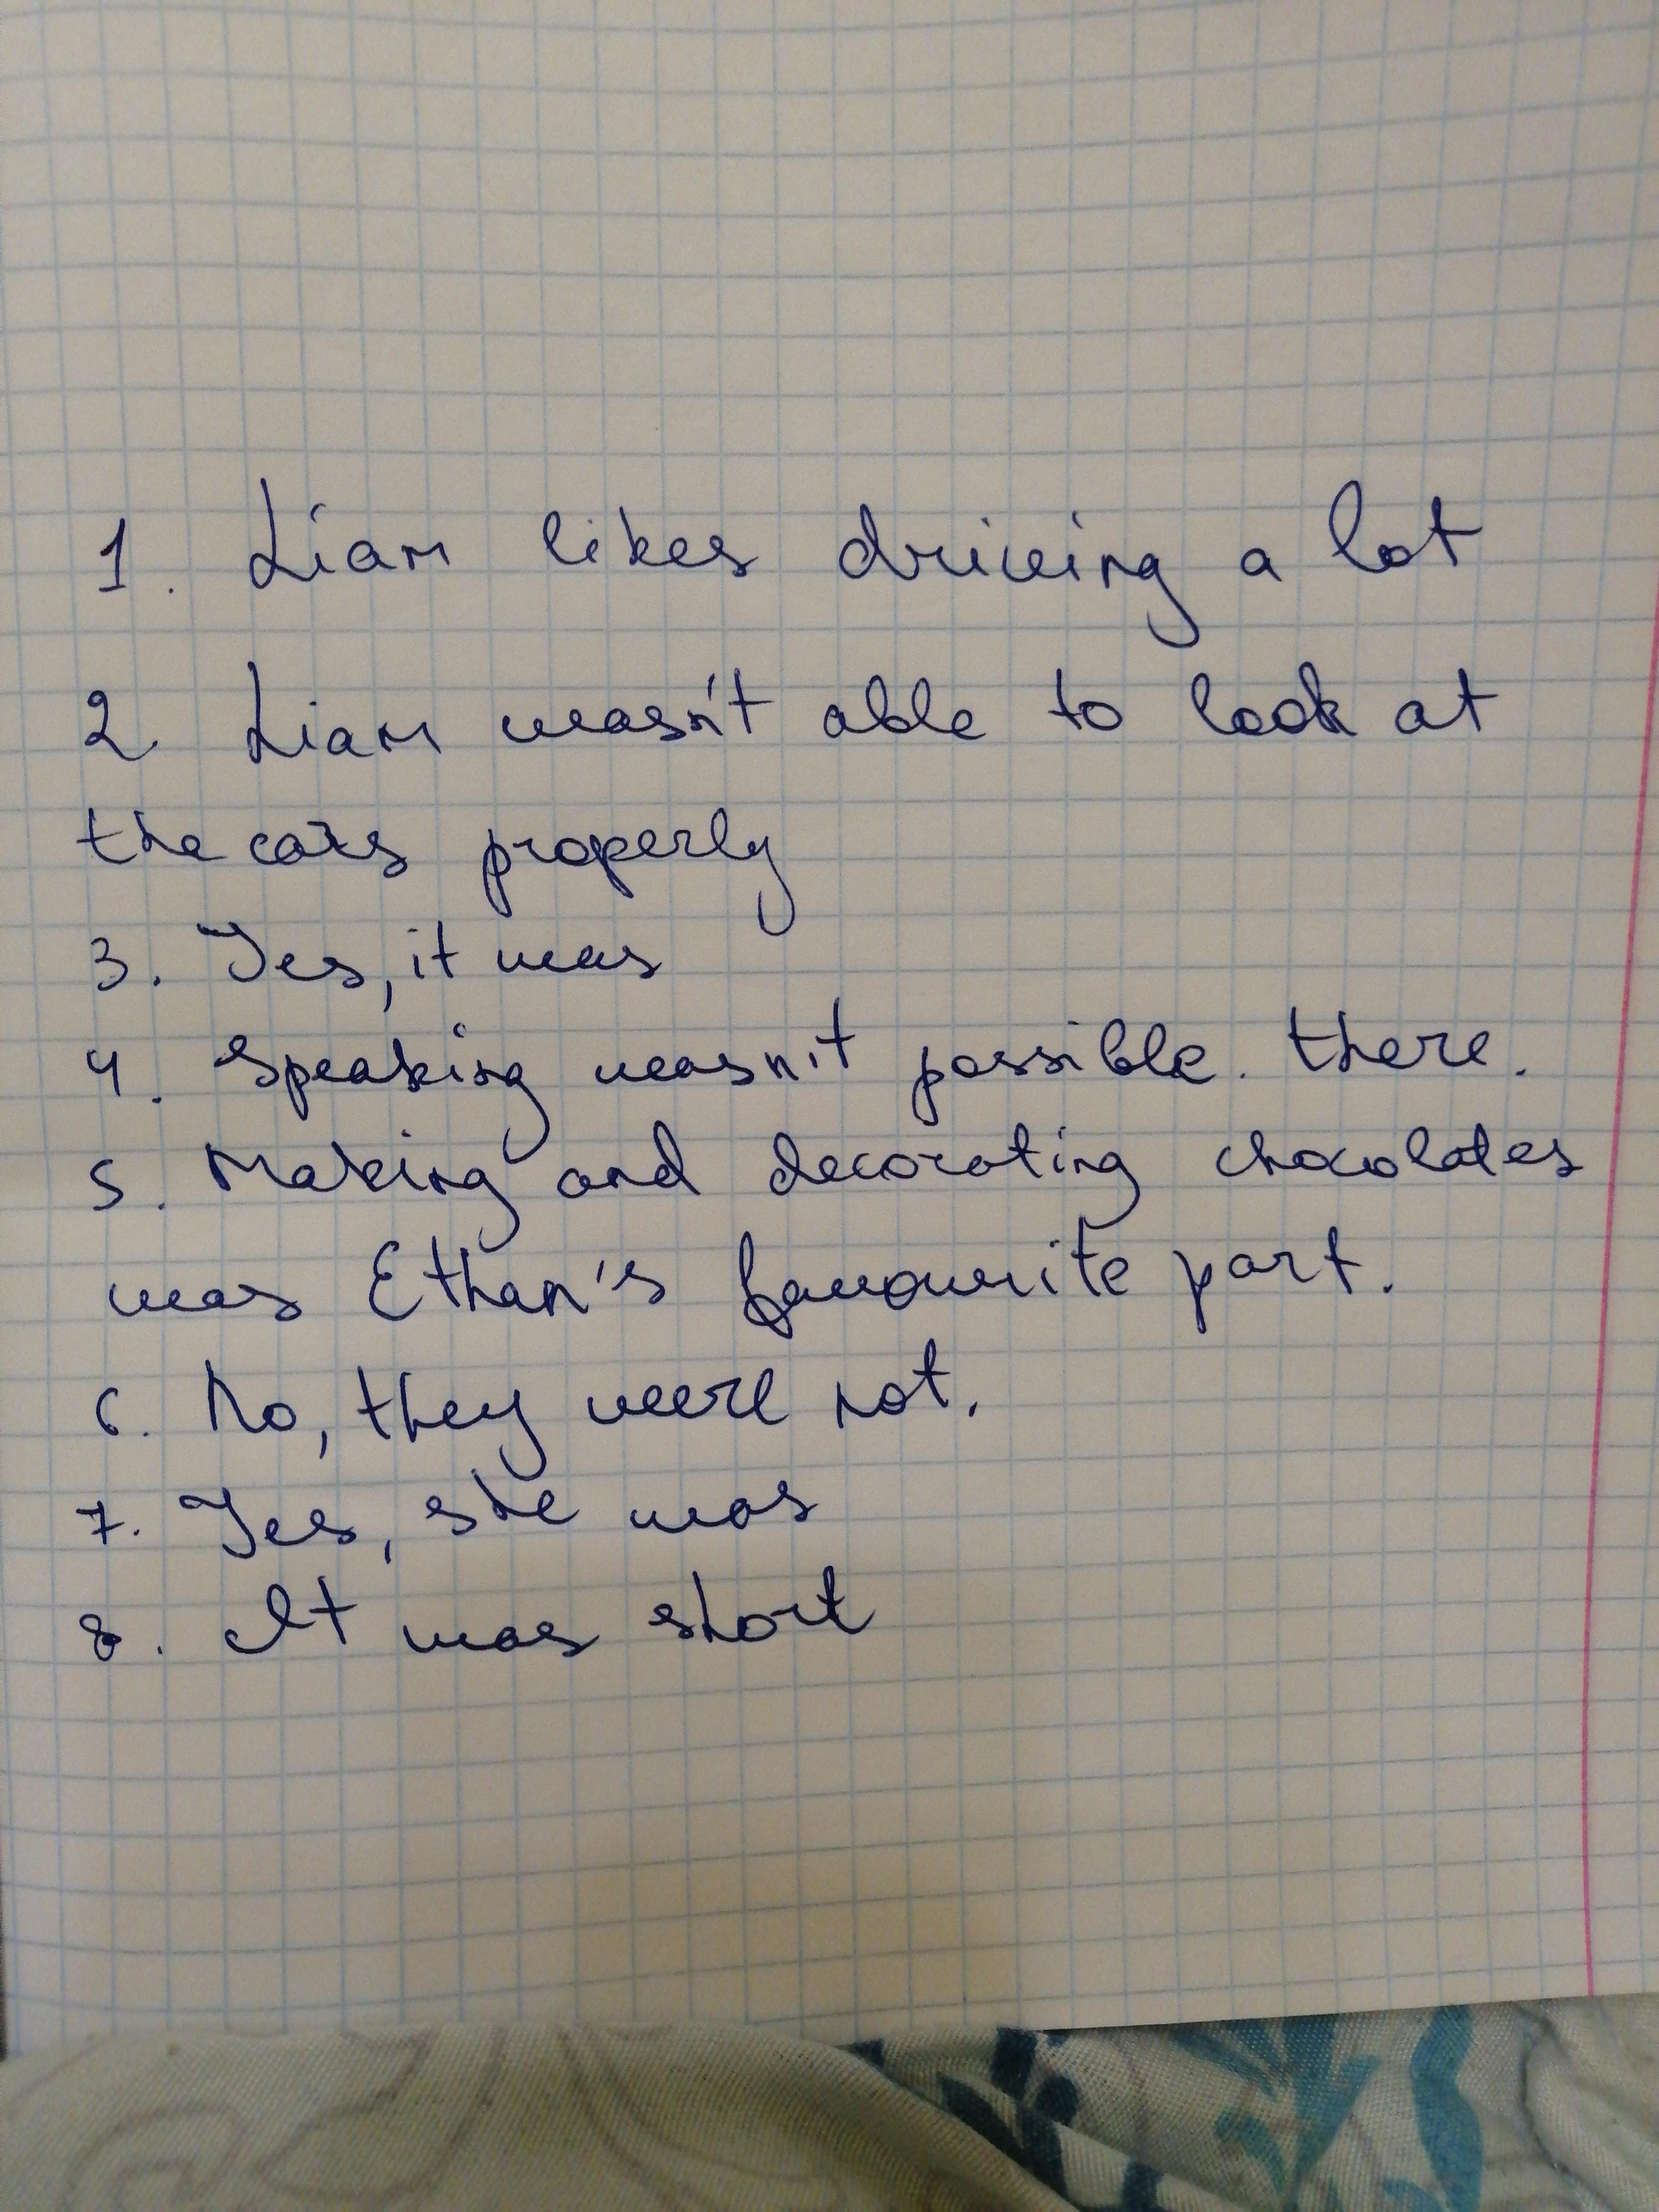 1. Liam likes driving a lot
2. Liam wasn't able to look at
the cars properly
3. Yes, it was
4. Speaking wasn't possible. there.
5. Making and decorating chocolates
was Ethan's favourite part.
6. No, they were not.
7. Yes, she was
8. It was short